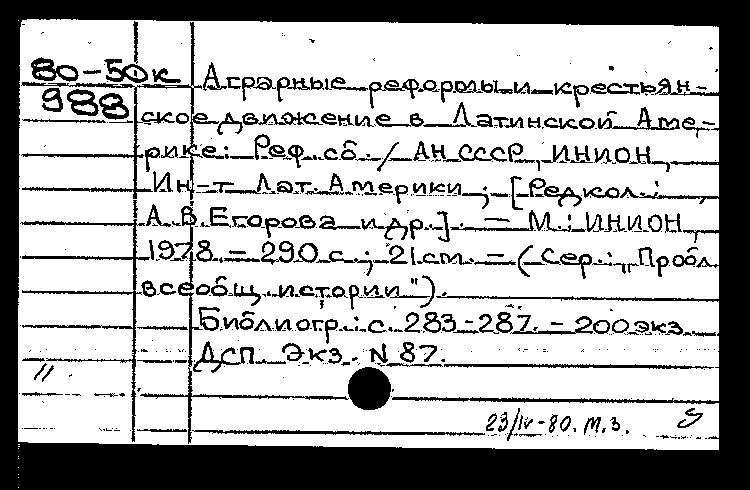 80-50к Аграрные реформы и крестьян-
988 ское движение в Латинской Аме-
рике: Реф. сб. / АН СССР, ИНИОН,
Ин-т Лат. Америки; [Редкол.:
А.В.Егорова и др.]. — М.: ИНИОН,
1978. — 290 с.; 21 см. — (Сер.: „Пробл.
всеобщ. истории").
Библиогр.: с. 283-287. — 200 экз.
Дсп. Экз. N 87.
11
23/IV-80. М.З.